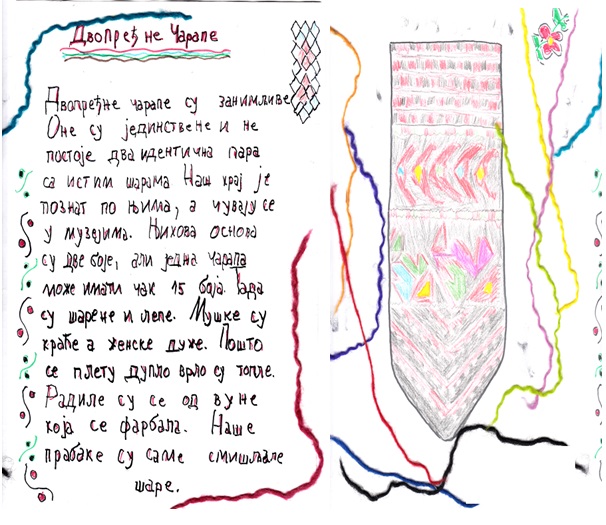 Двопређне Чарапе
Двопређне чарапе су занимљиве
Оне су јединствене и не
постоје два идентична пара
са истим шарама Наш крај је
познат по њима, а чувају се
у музејима. Њихова основа
су две боје, али једна чарапа
може имати чак 15 боја. Тада
су шарене и лепе. Мушке су
краће а женске дуже. Пошто
се плету дупло врло су топле.
Радиле су се од вуне
која се фарбала. Наше
прабаке су саме смишљале
шаре.